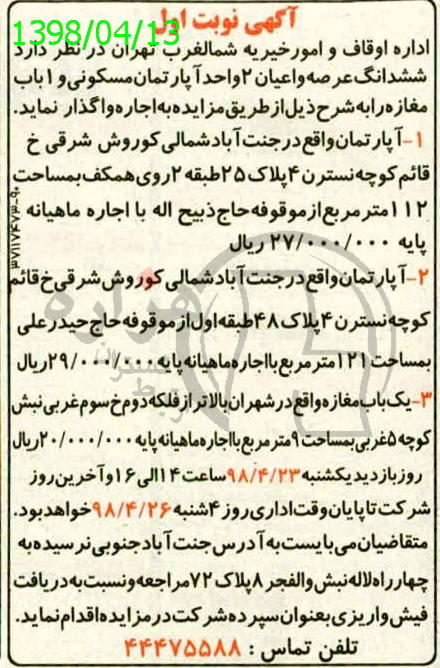 آگهی نوبت اول
1398/04/13
اداره اوقاف و امورخیریه شمالغرب تهران در نظر دارد
ششدانگ عرصه واعیان ۲واحد آپارتمان مسکونی و ۱باب
مغازه رابه شرح ذیل از طریق مزایده به اجاره واگذار نماید.
۱-آپارتمان واقع در جنت آباد شمالی کوروش شرقی خ
قائم کوچه نسترن ۴پلاک ۲۵طبقه ۲روی همکف بمساحت
۱۱۲مترمربع از موقوفه حاج ذبیح اله با اجاره ماهیانه
پایه ۲۷/۰۰۰/۰۰۰ ریال
۲-آپارتمان واقع در جنت آباد شمالی کوروش شرقی خ قائم
کوچه نسترن ۴پلاک ۴۸طبقه اول از موقوفه حاج حیدر علی
بمساحت ۱۲۱مترمربع با اجاره ماهیانه پایه ۲۹/۰۰۰/۰۰۰ریال
۳-یک باب مغازه واقع در شهران بالاتر از فلکه دوم خ سوم غربی نبش
کوچه ۵غربی بمساحت ۹متر مربع با اجاره ماهیانه پایه ۲۰/۰۰۰/۰۰۰ریال
روز بازدید یکشنبه ۹۸/۴/۲۳ساعت ۱۴الی ۱۶و آخرین روز
شرکت تا پایان وقت اداری روز ۴شنبه ۹۸/۴/۲۶خواهد بود.
متقاضیان می بایست به آدرس جنت آباد جنوبی نرسیده به
چهارراه لاله نبش والفجر ۸پلاک ۷۲مراجعه ونسبت به دریافت
فیش واریزی بعنوان سپرده شرکت در مزایده اقدام نماید.
تلفن تماس : ۴۴۴۷۵۵۸۸
هزاره